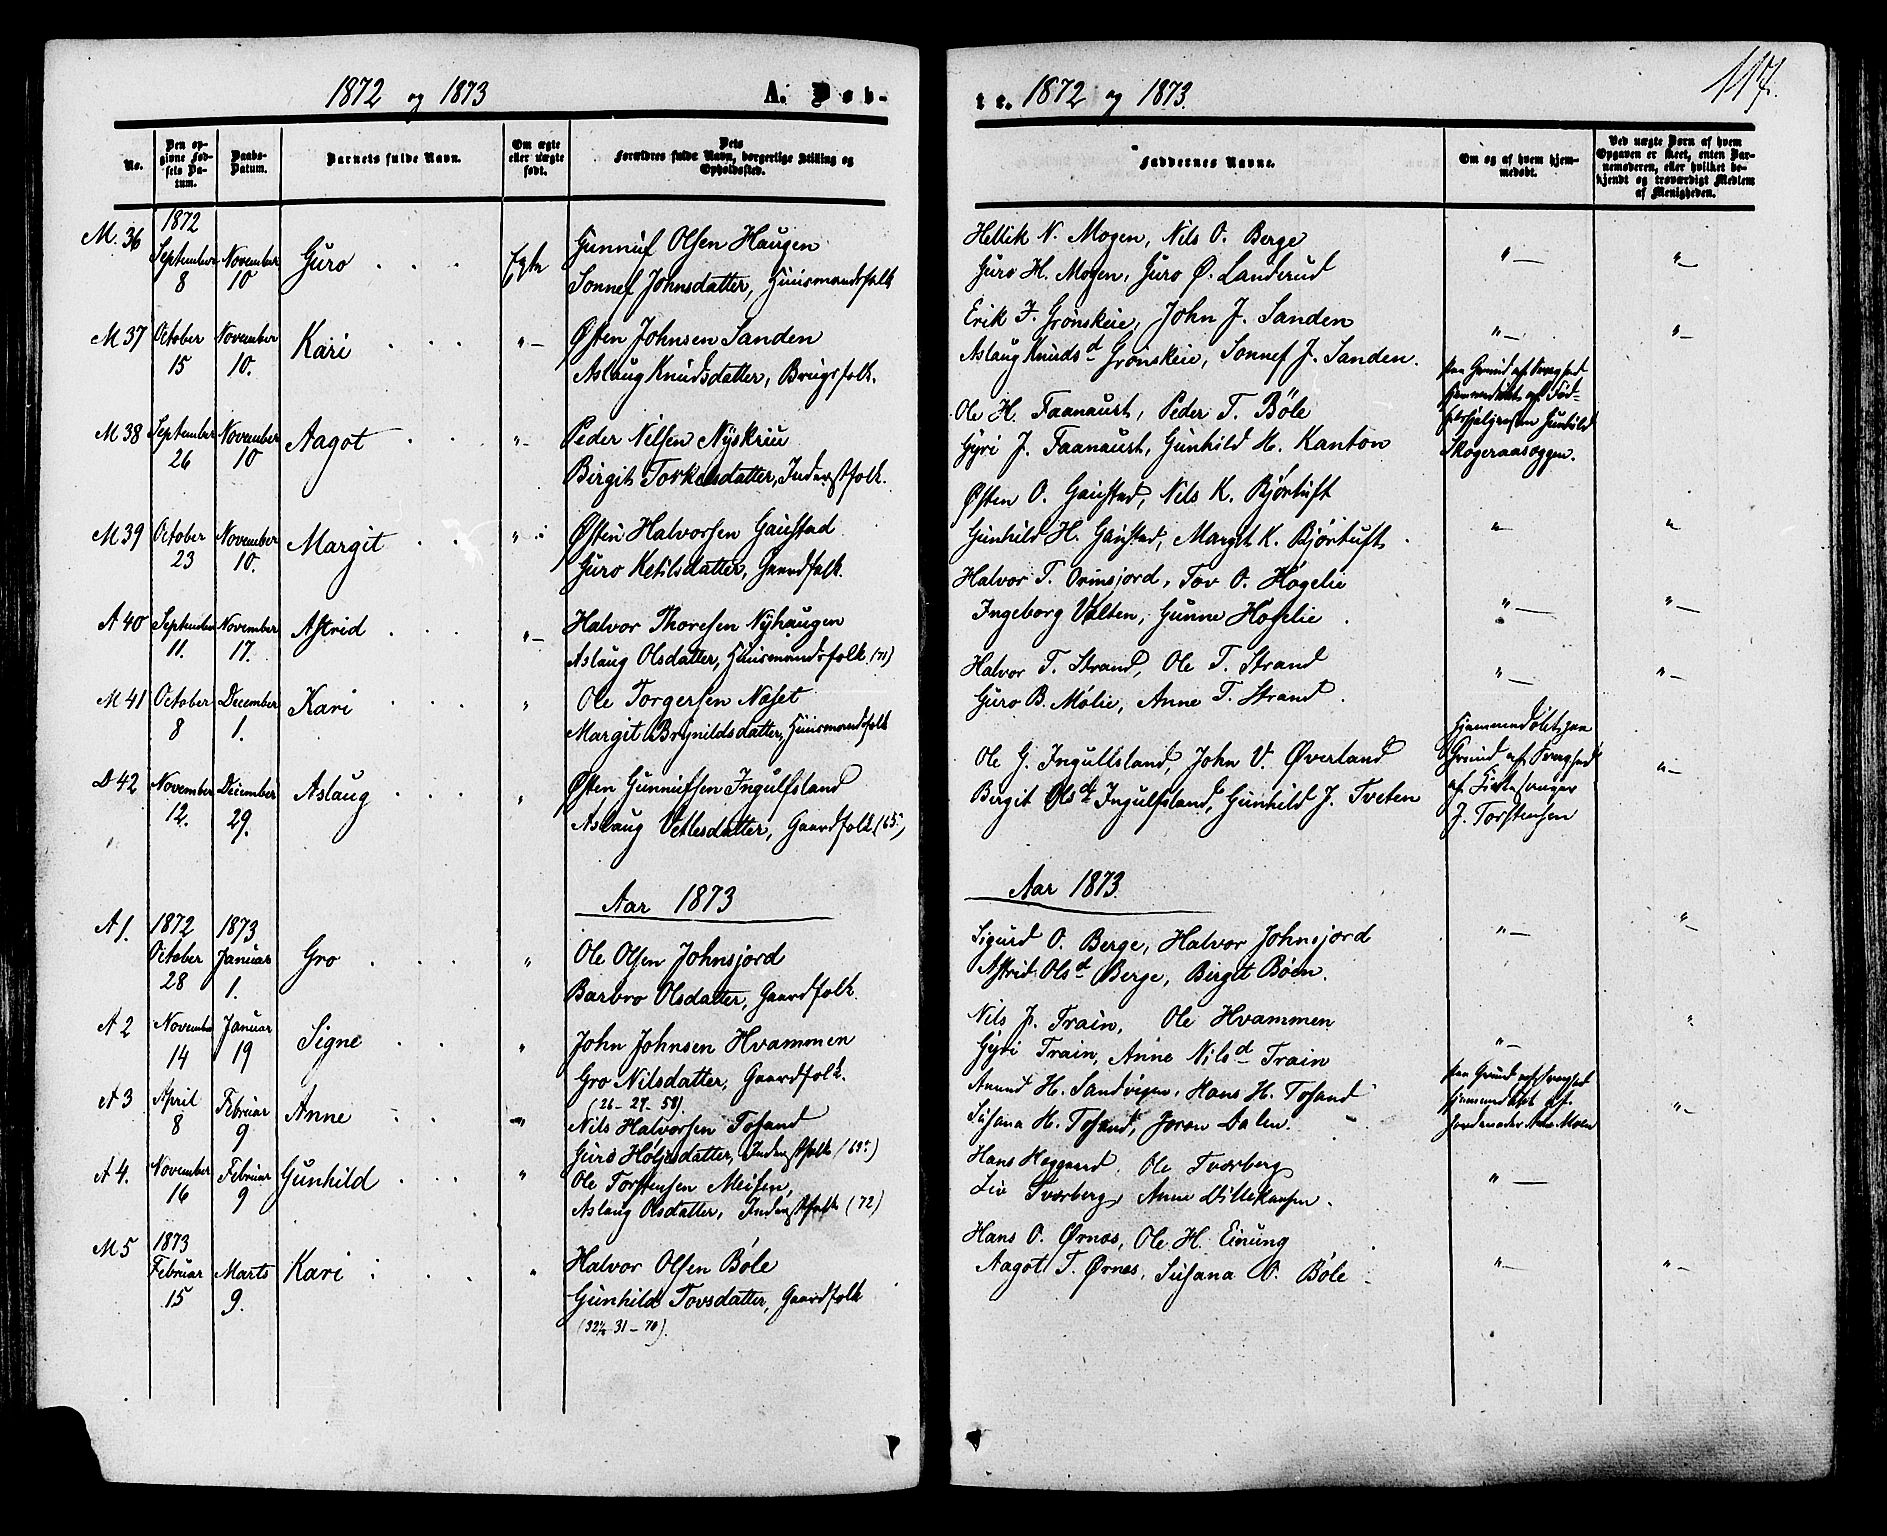 1872 og 1873 A. Døb-
No.
Den opgivne Fødsels Datum.
Daabs-Datum.
Barnets fulde Navn.
Om ægte eller uægte født.
Dets Forældres fulde Navn, borgerlige Stilling og Opholdssted.
M. 36 1872 September 8 November 10 Guro Egte
Gunnuf Olsen Haugen
Sonnef Johnsdatter, Huusmandsfolk
M 37 October 15 November 10. Kari "—
Østen Johnsen Sanden
Aslaug Knudsdatter, Brugsfolk.
M 38 September 26 November 10 Aagot "—
Peder Nilsen Nyskriu
Birgit Torkelsdatter, Inderstfolk.
M 39 October 23 November 10. Margit "
Østen Halvorsen Gaustad
Guro Ketilsdatter, Gaardfolk.
A 40 September 11. November 17. Astrid "—
Halvor Thoresen Nyhaugen
Aslaug Olsdatter, Huusmandsfolk (71)
M 41 October 8 December 1. Kari "
Ole Torgersen Næset
Margit Brynildsdatter, Huusmandsfolk
D 42 November 12. December 29. Aslaug "
Østen Gunnufsen Ingulfsland
Aslaug Vetlesdatter, Gaardfolk (65)
Aar 1873
A 1. 1872 October 28 1873 Januar 1. Gro "
Ole Olsen Johnsjord
Barbro Olsdatter, Gaardfolk.
A 2 November 14 Januar 19 Signe "
John Johnsen Hvammen
Gro Nilsdatter, Gaardfolk.
(26-27-58).
A 3 April 8 Februar 9 Anne "
Nils Halvorsen Tosand
Guro Holjesdatter, Inderstfolk (65)
A 4. November 16 Februar 9 Gunhild "
Ole Torstensen Meisen,
Aslaug Olsdatter, Inderstfolk (72)
M 5 1873 Februar 15 Marts 9. Kari "
Halvor Olsen Bøle
Gunhild Tovsdatter, Gaardfolk
(32½ 31-70).
te. 1872 og 1873.
117.
Faddernes Navne.
Om og af hvem hjemmedøbt.
Ved uægte Børn af hvem Opgaven er skeet, enten Barnemoderen, eller hvilket bekjendt og troværdigt Medlem af Menigheden.
Hellik N. Mogen, Nils O. Berge
Guro H. Mogen, Guro Ø. Landerud "— "—
Erik J. Grønskeie, John J. Sanden
Aslaug Knudsd Grønskeie, Sonnef J. Sanden. "— "—
Ole H. Faanaust, Peder T. Bøle
Gyri J. Faanaust, Gunhild H. Kanton
paa Grund af Svaghed
hjemmedøbt af Fød-
selshjelpersken Gunhild
Skogeraasoggen.
Østen O. Gaustad, Nils K. Bjørtuft
Gunhild H. Gaustad, Margit K. Bjørtuft. "— "
Halvor T. Ormsjord, Tov O. Høgelie
Ingeborg Valten, Gunne Høgelie. "— "—
Halvor T. Strand, Ole T. Strand
Guro B. Mølie, Anne T. Strand. "— "—
Ole G. Ingulfsland, John V. Øverland
Birgit Olsd Ingulfsland, Gunhild J. Tveten
Hjemmedøbt, paa
Grund af Svaghed
af Kirkesanger
J. Torstensen "—
Aar 1873.
Sigurd O. Berge, Halvor Johnsjord
Astrid Olsd Berge, Birgit Bøen. "— "
Nils J. Train, Ole Hvammen
Gyri Train, Anne Nilsd Train "— "
Amund H. Sandvigen, Hans H. Tosand
Susana H. Tosand, Joron Dalen.
paa Grund af Svaghed
hjemmedøbt af
Jordemoder Moen "—
Hans Haggaard, Ole Tvorberg
Liv Tvorberg, Anne Villekansen. "—
Hans O. Ørnes, Ole H. Einung
Aagot T. Ørnes, Susana O. Bøle "— "—